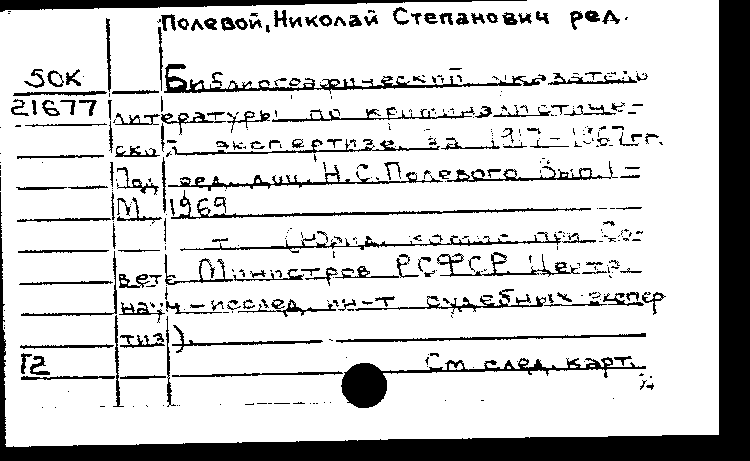 Полевой, Николай Степанович ред.
50К
21677
Библиографический указатель
литературы по криминалистиче-
ской экспертизе за 1917-1967гг.
Под ред. доц. Н.С.Полевого. Вып.1-
М., 1969.
т. (Юрид. комис. при Со-
вете Министров РСФСР. Центр.
науч-исслед. ин-т судебных экспер
тиз).
12
См след. карт.